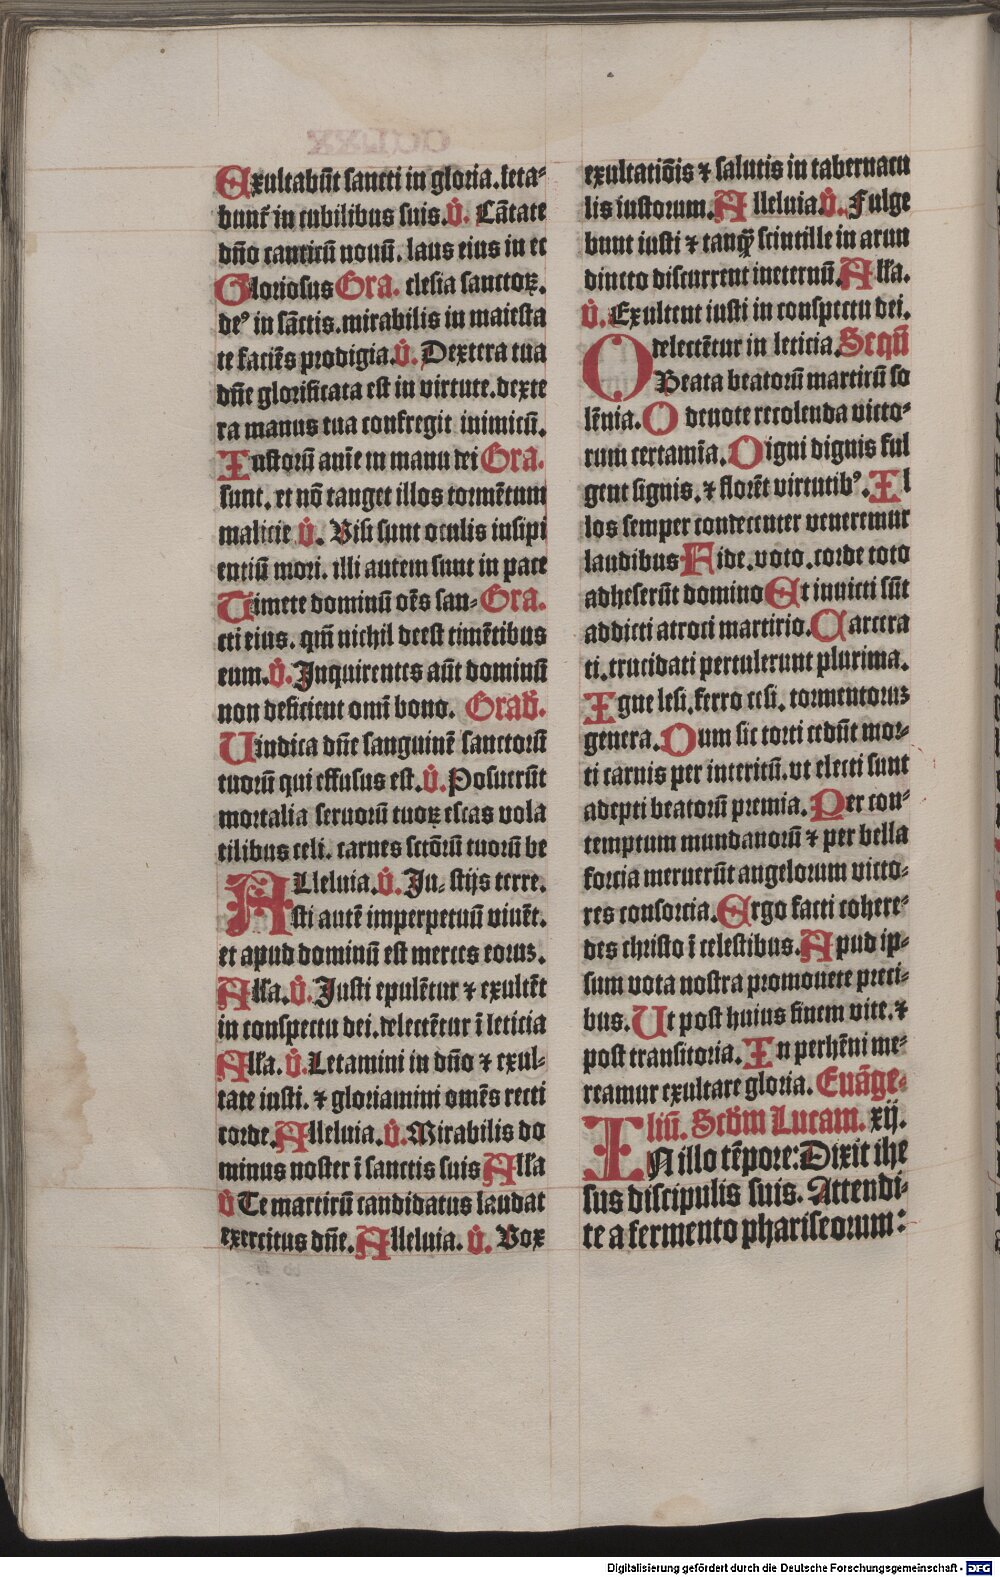 Exultabūt sancti in gloria. leta-
bunt᷑ in cubilibus suis. V̊. Cātate
dño canticū nouū. laus eius in ec
Gloriosus Gra. clesia sanctoꝝ.
deꝰ in sāctis. mirabilis in maiesta
te faciēs prodigia. V̊. Dextera tua
dñe glorificata est in virtute. dexte
ra manus tua confregit inimicū.
Iustorū aīe in manu dei Gra.
sunt. et nō tanget illos tormētum
malicie V̊. Visi sunt oculis insipi
entiū mori. illi autem sunt in pace
Timete dominū oēs san- Gra.
cti eius. qm̄ nichil deest timētibus
eum. V̊. Inquirentes aūt dominū
non deficient omī bono. Grad̄.
Uindica dñe sanguinē sanctorū
tuorū qui effusus est. V̊. Posuerūt
mortalia seruorū tuoꝝ escas vola
tilibus celi. carnes sctōrū tuorū be
Alleluia. V̊. Ju- stijs terre.
sti autē imperpetuū viuēt.
et apud dominū est merces eoruꝫ.
Alła. V̊. Justi epulētur ⁊ exultēt
in conspectu dei. delectētur ī leticia
Alła. V̊. Letamini in dño ⁊ exul-
tate iusti. ⁊ gloriamini omēs recti
corde. Alleluia. V̊. Mirabilis do
minus noster ī sanctis suis Alła
V̊ Te martirū candidatus laudat
exercitus dñe. Alleluia. V̊. Vox
exultatiōis ⁊ salutis in tabernacu
lis iustorum. Alleluia. V̊. Fulge
bunt iusti ⁊ tanqꝫ scintille in arun
dineto discurrent ineternū. Alła.
V̊. Exultent iusti in conspectu dei.
delectētur in leticia. Sequē
O Beata beatorū martirū so
lēnia. O deuote recolenda victo-
rum certamīa. Digni dignis ful
gent signis. ⁊ florēt virtutibꝰ. Il
los semper condecenter veneremur
laudibus Fide. voto. corde toto
adheserūt domino Et inuicti sūt
addicti atroci martirio. Carcera
ti. trucidati pertulerunt plurima.
Igne lesi. ferro cesi. tormentoruꝫ
genera. Dum sic torti cedūt mor-
ti carnis per interitū. vt electi sunt
adepti beatorū premia. Per con-
temptum mundanorū ⁊ per bella
forcia meruerūt angelorum victo-
res consorcia. Ergo facti cohere-
des christo ī celestibus. Apud ip-
sum vota nostra promouete preci-
bus. Ut post huius finem vite. ⁊
post transitoria. In perhēni me-
reamur exultare gloria. Euāge-
liū. Scd̄m Lucam. xij.
IN illo tēpore: Dixit ihe
sus discipulis suis. Attendi-
te a fermento phariseorum:
Digitalisierung gefördert durch die Deutsche Forschungsgemeinschaft - DFG